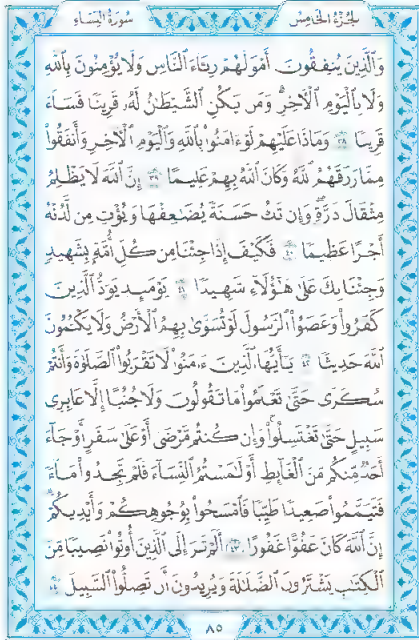 الجزء الخامس
سورة النساء
وَالَّذِينَ يُنفِقُونَ أَمْوَٰلَهُمْ رِئَآءَ النَّاسِ وَلَا يُؤْمِنُونَ بِاللَّهِ
وَلَا بِالْيَوْمِ الْآخِرِ وَمَن يَكُنِ الشَّيْطَٰنُ لَهُۥ قَرِينًا فَسَآءَ
قَرِينًا ٣٨ وَمَاذَا عَلَيْهِمْ لَوْ ءَامَنُوا۟ بِاللَّهِ وَالْيَوْمِ الْآخِرِ وَأَنفَقُوا۟
مِمَّا رَزَقَهُمُ اللَّهُ وَكَانَ اللَّهُ بِهِمْ عَلِيمًا ٣٩ إِنَّ اللَّهَ لَا يَظْلِمُ
مِثْقَالَ ذَرَّةٍ وَإِن تَكُ حَسَنَةً يُضَٰعِفْهَا وَيُؤْتِ مِن لَّدُنْهُ
أَجْرًا عَظِيمًا ٤٠ فَكَيْفَ إِذَا جِئْنَا مِن كُلِّ أُمَّةٍۭ بِشَهِيدٍ
وَجِئْنَا بِكَ عَلَىٰ هَٰٓؤُلَآءِ شَهِيدًا ٤١ يَوْمَئِذٍ يَوَدُّ الَّذِينَ
كَفَرُوا۟ وَعَصَوُا۟ الرَّسُولَ لَوْ تُسَوَّىٰ بِهِمُ الْأَرْضُ وَلَا يَكْتُمُونَ
اللَّهَ حَدِيثًا ٤٢ يَٰٓأَيُّهَا الَّذِينَ ءَامَنُوا۟ لَا تَقْرَبُوا۟ الصَّلَوٰةَ وَأَنتُمْ
سُكَٰرَىٰ حَتَّىٰ تَعْلَمُوا۟ مَا تَقُولُونَ وَلَا جُنُبًا إِلَّا عَابِرِى
سَبِيلٍ حَتَّىٰ تَغْتَسِلُوا۟ وَإِن كُنتُم مَّرْضَىٰٓ أَوْ عَلَىٰ سَفَرٍ أَوْ جَآءَ
أَحَدٌ مِّنكُم مِّنَ الْغَآئِطِ أَوْ لَٰمَسْتُمُ النِّسَآءَ فَلَمْ تَجِدُوا۟ مَآءً
فَتَيَمَّمُوا۟ صَعِيدًا طَيِّبًا فَامْسَحُوا۟ بِوُجُوهِكُمْ وَأَيْدِيكُمْ
إِنَّ اللَّهَ كَانَ عَفُوًّا غَفُورًا ٤٣ أَلَمْ تَرَ إِلَى الَّذِينَ أُوتُوا۟ نَصِيبًا مِّنَ
الْكِتَٰبِ يَشْتَرُونَ الضَّلَٰلَةَ وَيُرِيدُونَ أَن تَضِلُّوا۟ السَّبِيلَ ٤٤
٨٥